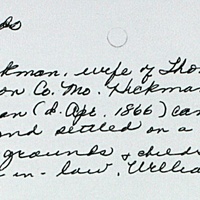 ds
kman, wife of Tho
on Co. Mo. Hickman
an (d. Apr. 1866) ca
and settled on a
grounds & childr
in-law, William